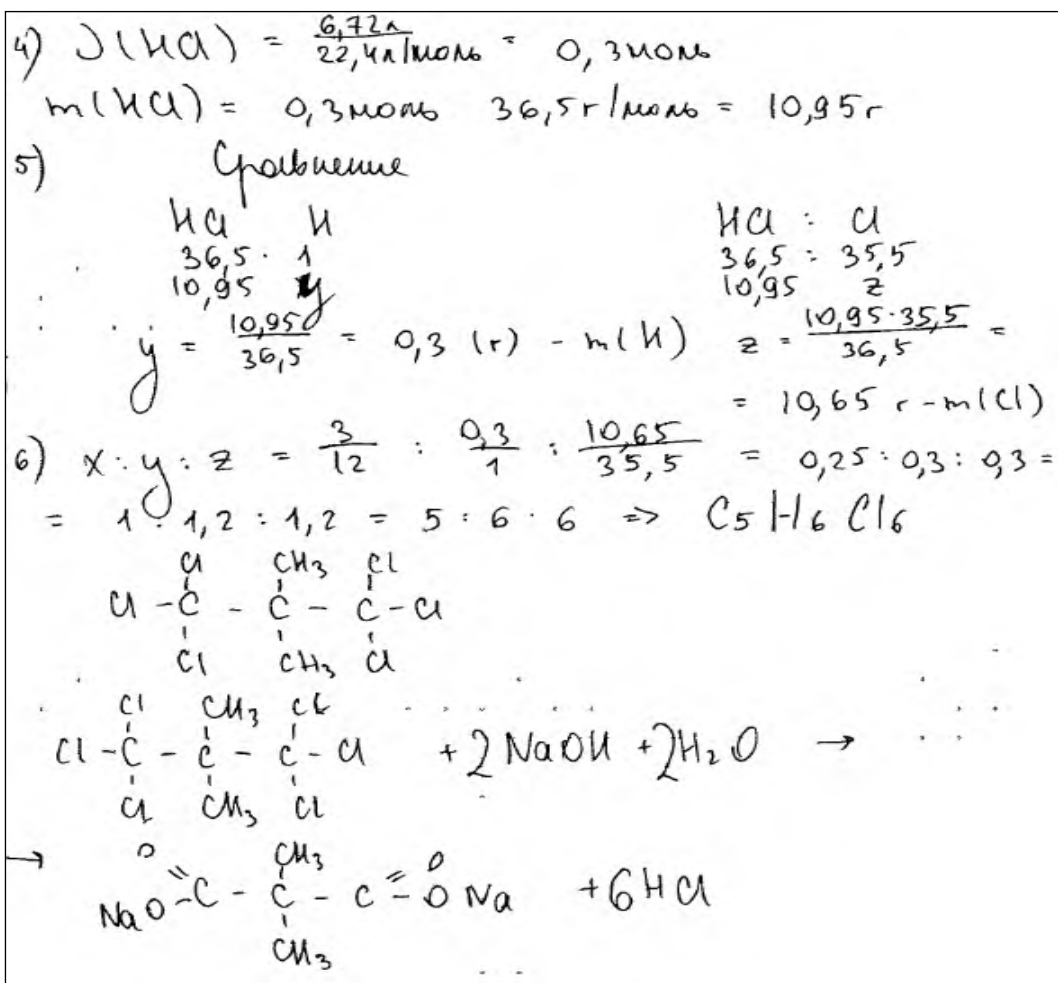 4) ν(HCl) = 6,72л / 22,4л/моль = 0,3моль
m(HCl) = 0,3моль 36,5г/моль = 10,95г
5) Сравнение
HCl H HCl : Cl
36,5 · 1 36,5 : 35,5
10,95 y 10,95 z
y = 10,95 / 36,5 = 0,3 (г) - m(H) z = 10,95·35,5 / 36,5 =
= 10,65 г - m(Cl)
6) x : y : z = 3/12 : 0,3/1 : 10,65/35,5 = 0,25 : 0,3 : 0,3 =
= 1 : 1,2 : 1,2 = 5 : 6 : 6 => C5H6Cl6
Cl CH3 Cl
Cl - C - C - C - Cl
Cl CH3 Cl
Cl CH3 Cl
Cl - C - C - C - Cl + 2NaOH + 2H2O →
Cl CH3 Cl
→ O CH3 O
NaO - C - C - C - ONa + 6HCl
CH3